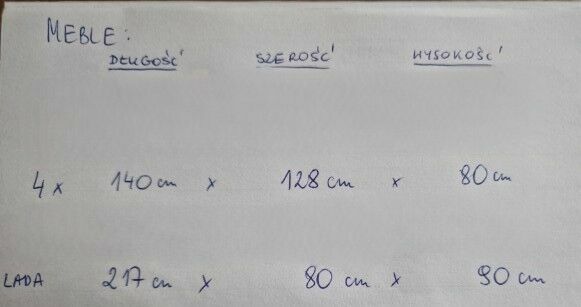 MEBLE:
DŁUGOŚĆ SZEROŚĆ WYSOKOŚĆ
4 x 140 cm x 128 cm x 80 cm
LADA 217 cm x 80 cm x 90 cm